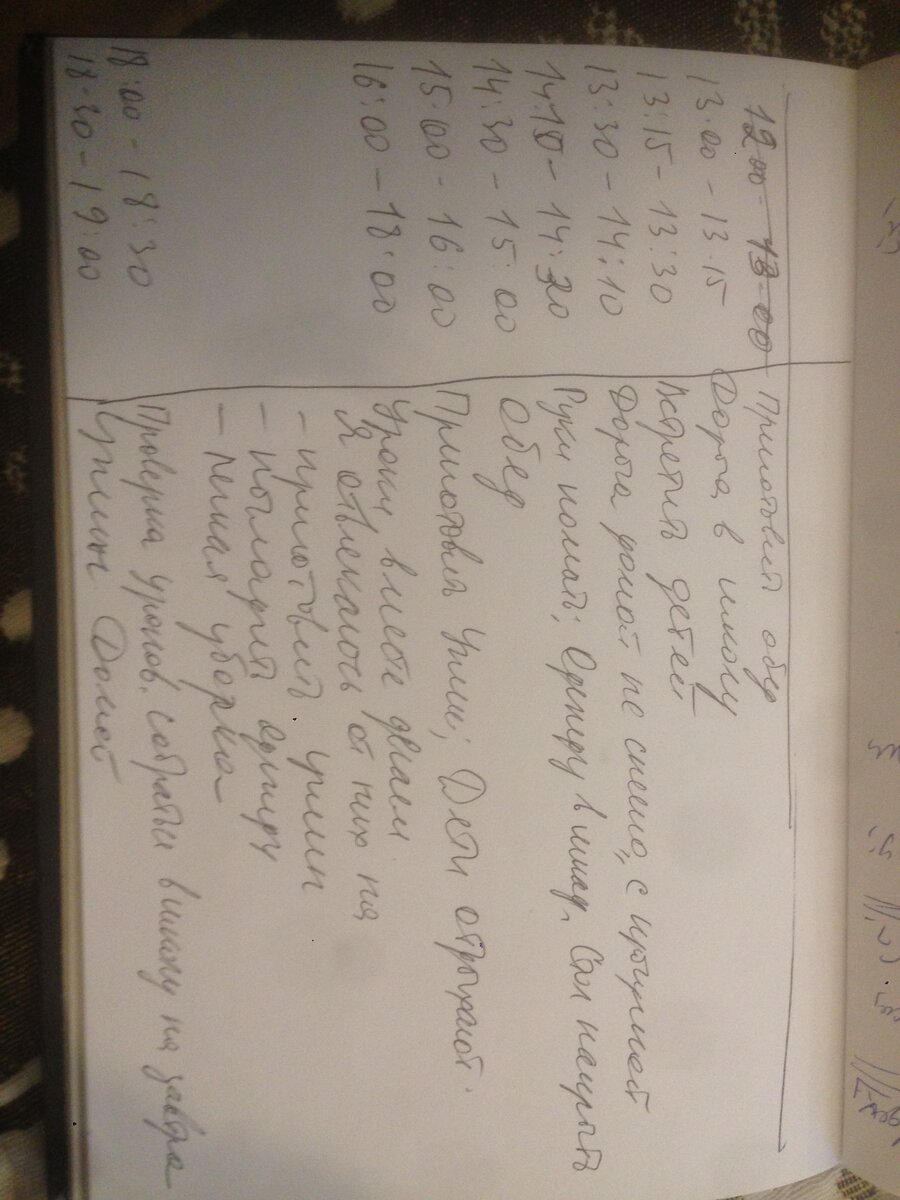 12 00 - 13-00 Приготовит обед
13.00 - 13.15 Дорога в школу
13:15 - 13:30 Встретить детей
13:30 - 14:10 Дорога домой не спеша, с прогулкой
14:10 - 14:20 Руки помыть; Одежду в шкаф. Стол накрыть
14:30 - 15:00 Обед
15:00 - 16:00 Приготовка Ужин; Дети отдыхают.
16:00 - 18:00 Уроки вместе делаем
Я отвлекаюсь от них на
- приготовить ужин
- погладить одежду
- легкая уборка
18:00 - 18:30 Проверка уроков. собрать в школу на завтра
18-30 - 19:00 Ужин. Домой